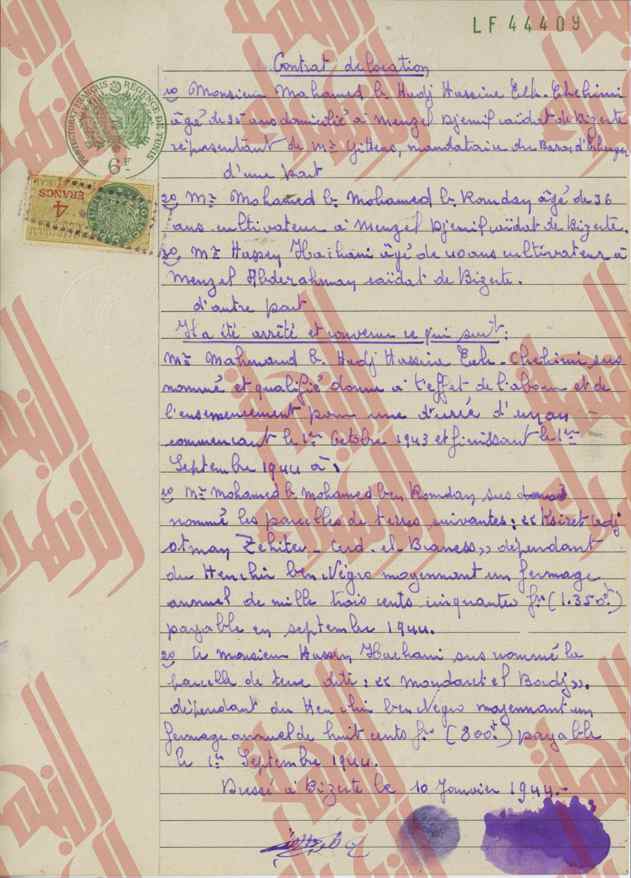 LF 44409
PROTECTORAT FRANÇAIS RÉGENCE DE TUNIS
6F
4 FRANCS
Contrat de location
1o Monsieur Mahamed b. Hadj Hassine Ech-Chehimi
âgé de 35 ans domicilié à Menzel Djemil caïdat de Bizerte
représentant de Mr. Gittens, mandataire du Baron d'Erlanger
d'une part
2o Mr Mohamed b. Mohamed b. Romdan âgé de 36
ans cultivateur à Menzel Djemil caïdat de Bizerte.
3o Mr Hassen Hachani âgé de 40 ans cultivateur à
Menzel Abderahman caïdat de Bizerte.
d'autre part
Il a été arrêté et convenu ce qui suit :
Mr Mahmoud b. Hadj Hassine Ech-Chehimi sus
nommé et qualifié donne à l'effet de labour et de
l'ensemencement pour une durée d'un an
commencant le 1er Octobre 1943 et finissant le 1er
Septembre 1944 à :
1o Mr Mohamed b. Mohamed ben Romdan sus
nommé les parcelles de terres suivantes : « Ksiret
otman - el - dépendant
du Henchir ben Négro moyennant un fermage
annuel de mille trois cents cinquante frs (1.350 frs)
payable en septembre 1944.
2o A monsieur Hassen Hachani sus nommé la
parcelle de terre dite : « el Bordj ».
dépendant du Henchir ben Négro moyennant un
fermage annuel de huit cents frs (800 frs) payable
le 1er Septembre 1944.
Dressé à Bizerte le 10 Janvier 1944.-